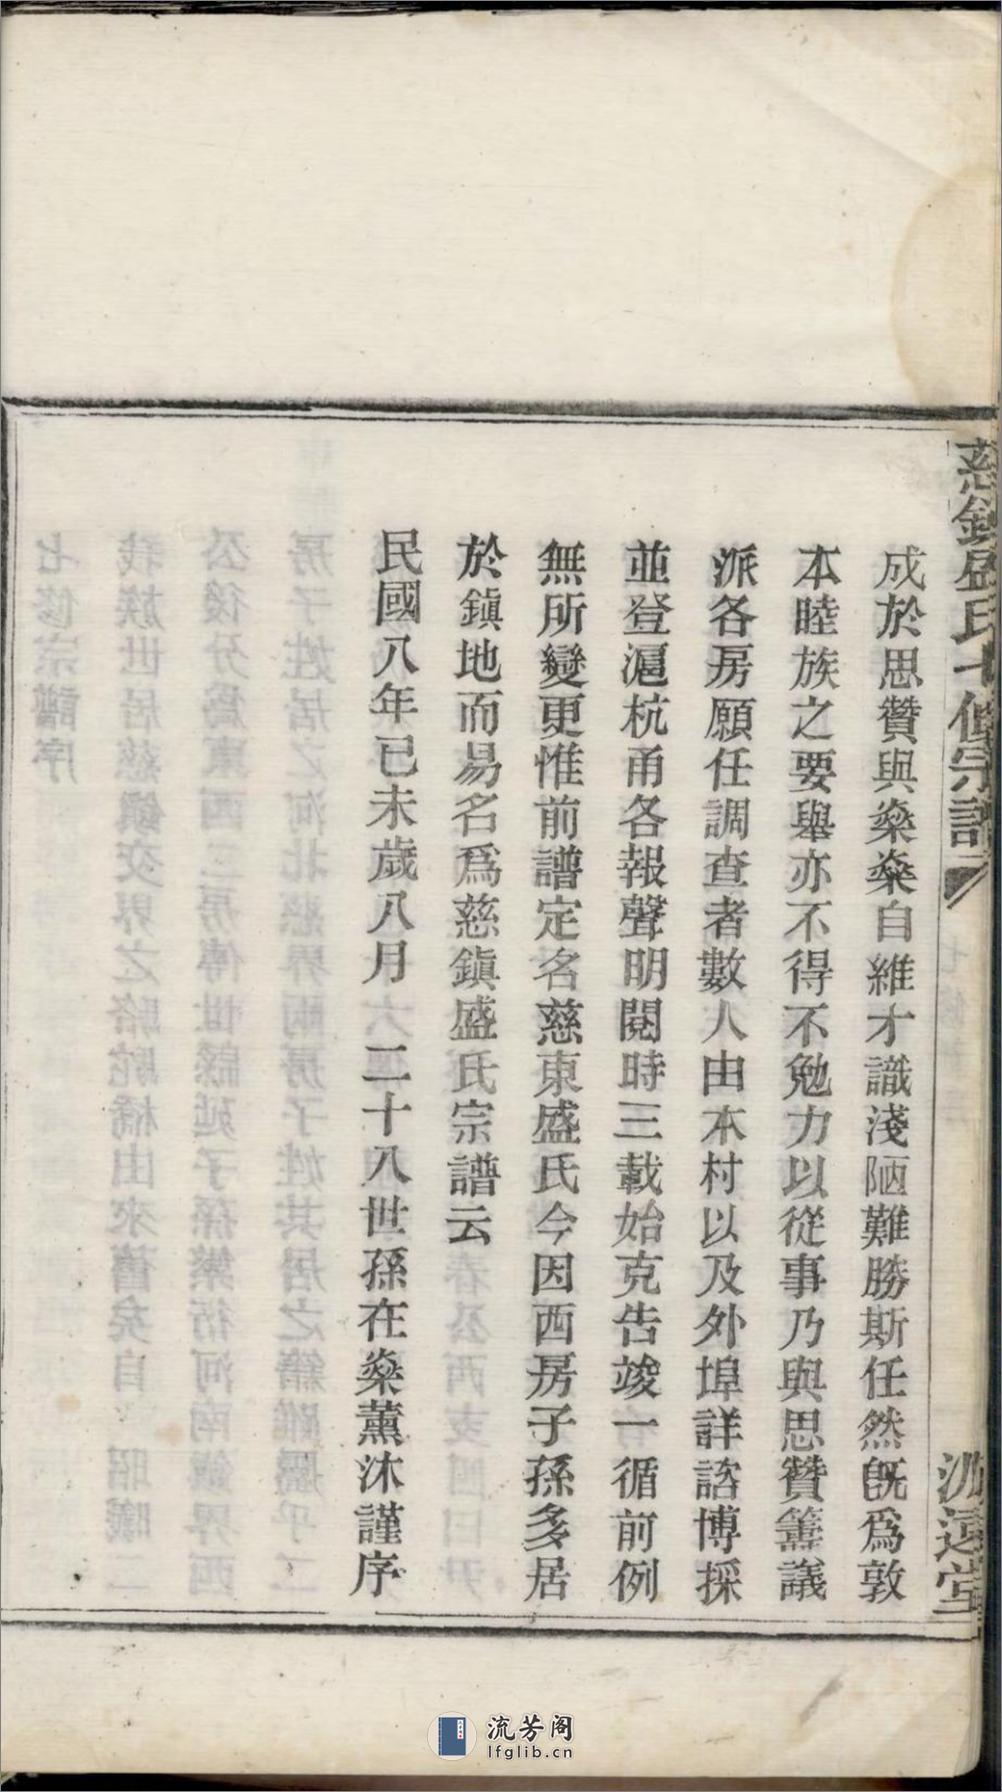 慈鎮盛氏七修宗譜
成於思贊與燊燊自維才識淺陋難勝斯任然旣爲敦
本睦族之要舉亦不得不勉力以從事乃與思贊籌議
派各房願任調查者數人由本村以及外埠詳諮博採
並登滬杭甬各報聲明閱時三載始克告竣一循前例
無所變更惟前譜定名慈東盛氏今因西房子孫多居
於鎭地而易名爲慈鎭盛氏宗譜云
民國八年已未歲八月 二十八世孫在燊薰沐謹序
遠堂
流芳阁
lfglib.cn